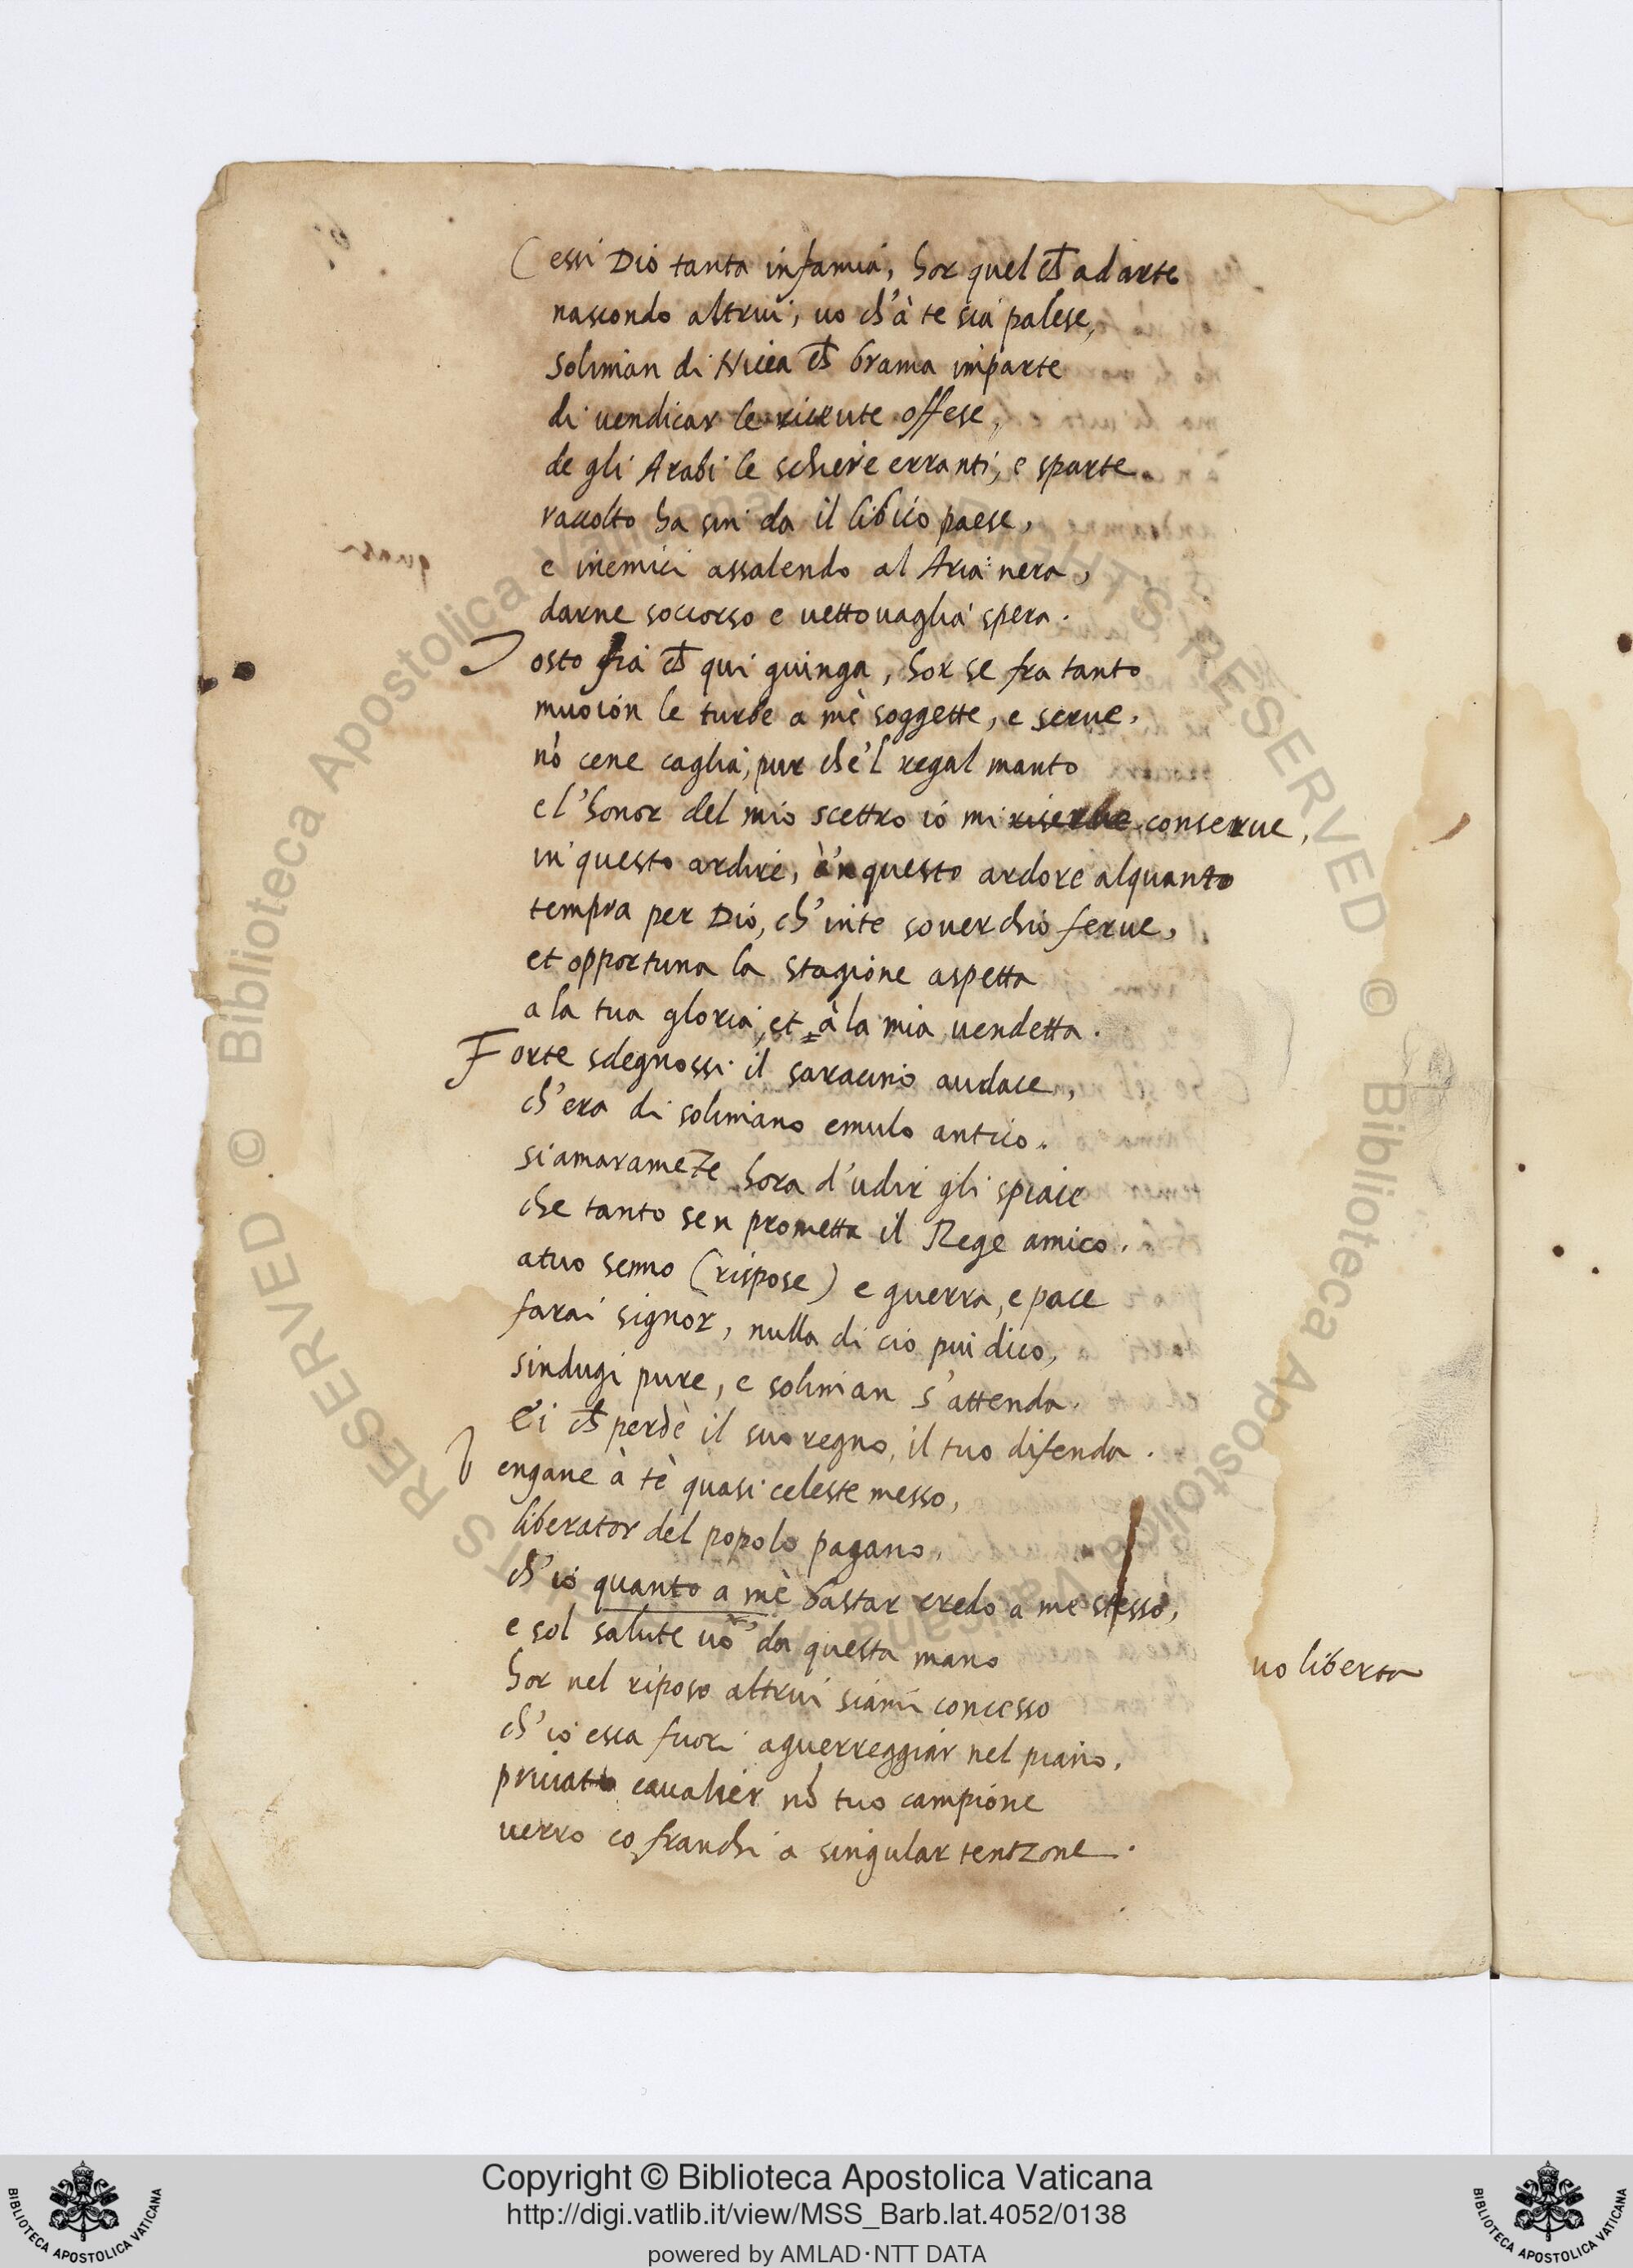 Cessi Dio tanta infamia, hor quel ch̄ ad arte
nascondo altrui, uo ch'à te sia palese,
Soliman di Nicea ch̄ brama imparte
di uendicar le riceute offese,
de gli Arabi le schiere erranti, e sparte
raccolto ha sin da il libico paese,
e inemici assalendo al Aria nera,
darne soccorso e uettouaglia spera.
Tosto fia ch̄ qui giunga, hor se fra tanto
muoion le turbe a mè soggette, e serue,
nō cene caglia, pur che'l regal manto
e l'honor del mio scettro io mi riserbe conserue,
in questo ardire, è'n questo ardore alquanto
tempra per Dio, ch'inte souerchio ferue,
et opportuna la stagione aspetta
a la tua gloria, et à la mia uendetta.
Forte sdegnossi il saracino audace,
ch'era di solimano emulo antico.
si amaramēte hora d'udir gli spiace
che tanto sen prometta il Rege amico.
a tuo senno (rispose) e guerra, e pace
farai signor, nulla di cio piu dico,
sindugi pure, e soliman s'attenda.
Ei ch̄ perdè il suo regno, il tuo difenda.
Vengane à tè quasi celeste messo,
liberator del popolo pagano,
ch'io quanto a mè bastar credo a me stesso,
e sol salute uo da questa mano
uo liberta
hor nel riposo altrui siami concesso
ch'io esca fuori a guerreggiar nel piano,
priuato caualier nō tuo campione
uerro co franchi a singular tentzone.
quasi